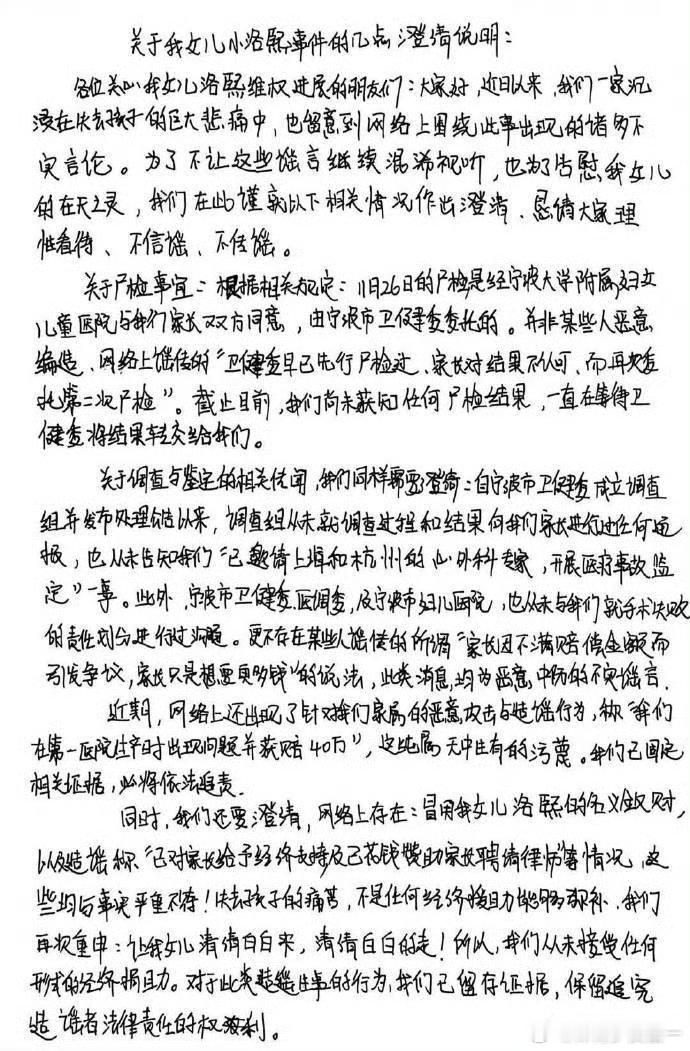 关于我女儿小洛熙事件的几点澄清说明：
各位关心我女儿洛熙维权进展的朋友们：大家好，近日以来，我们一家沉
浸在失去孩子的巨大悲痛中，也留意到网络上围绕此事出现的诸多不
实言论。为了不让这些谣言继续混淆视听，也为了告慰我女儿
的在天之灵，我们在此谨就以下相关情况作出澄清，恳请大家理
性看待、不信谣、不传谣。
关于尸检事宜：根据相关规定：11月26日的尸检是经宁波大学附属妇女
儿童医院与我们家长双方同意，由宁波市卫健委委托的。并非某些人恶意
编造、网络上谣传的“卫健委早已先行尸检过、家长对结果不认可、而再次委
托第二次尸检”。截止目前，我们尚未获知任何尸检结果，一直在等待卫
健委将结果转交给我们。
关于调查与鉴定的相关传闻，我们同样需要澄清：自宁波市卫健委成立调查
组并发布处理信息以来，调查组从未就调查过程和结果向我们家长进行过任何通
报，也从未告知我们“已邀请上海和杭州的心外科专家，开展医疗事故监
定”一事。此外，宁波市卫健委、医调委，及宁波市妇儿医院，也从未与我们就手术失败
的责任划分进行过沟通。更不存在某些人谣传的所谓“家长因不满赔偿金额而
引发争议，家长只是想要更多钱”的说法，此类消息，均为恶意中伤的不实谣言.
近期，网络上还出现了针对我们家属的恶意攻击与造谣行为，称“我们
在第一医院生产时出现问题并获赔40万”，这纯属无中生有的污蔑。我们已固定
相关证据，必将依法追责.
同时，我们还要澄清，网络上存在：冒用我女儿洛熙的名义敛财，
以及造谣称“已对家长给予经济支持及已花钱援助家长聘请律师”等情况，这
些均与事实严重不符！失去孩子的痛苦，不是任何经济援助能够弥补，我们
再次重申：让我女儿清清白白来，清清白白的走！所以，我们从未接受任何
形式的经济捐助。对于此类造谣生事的行为，我们已留存证据，保留追究
造谣者法律责任的权利。